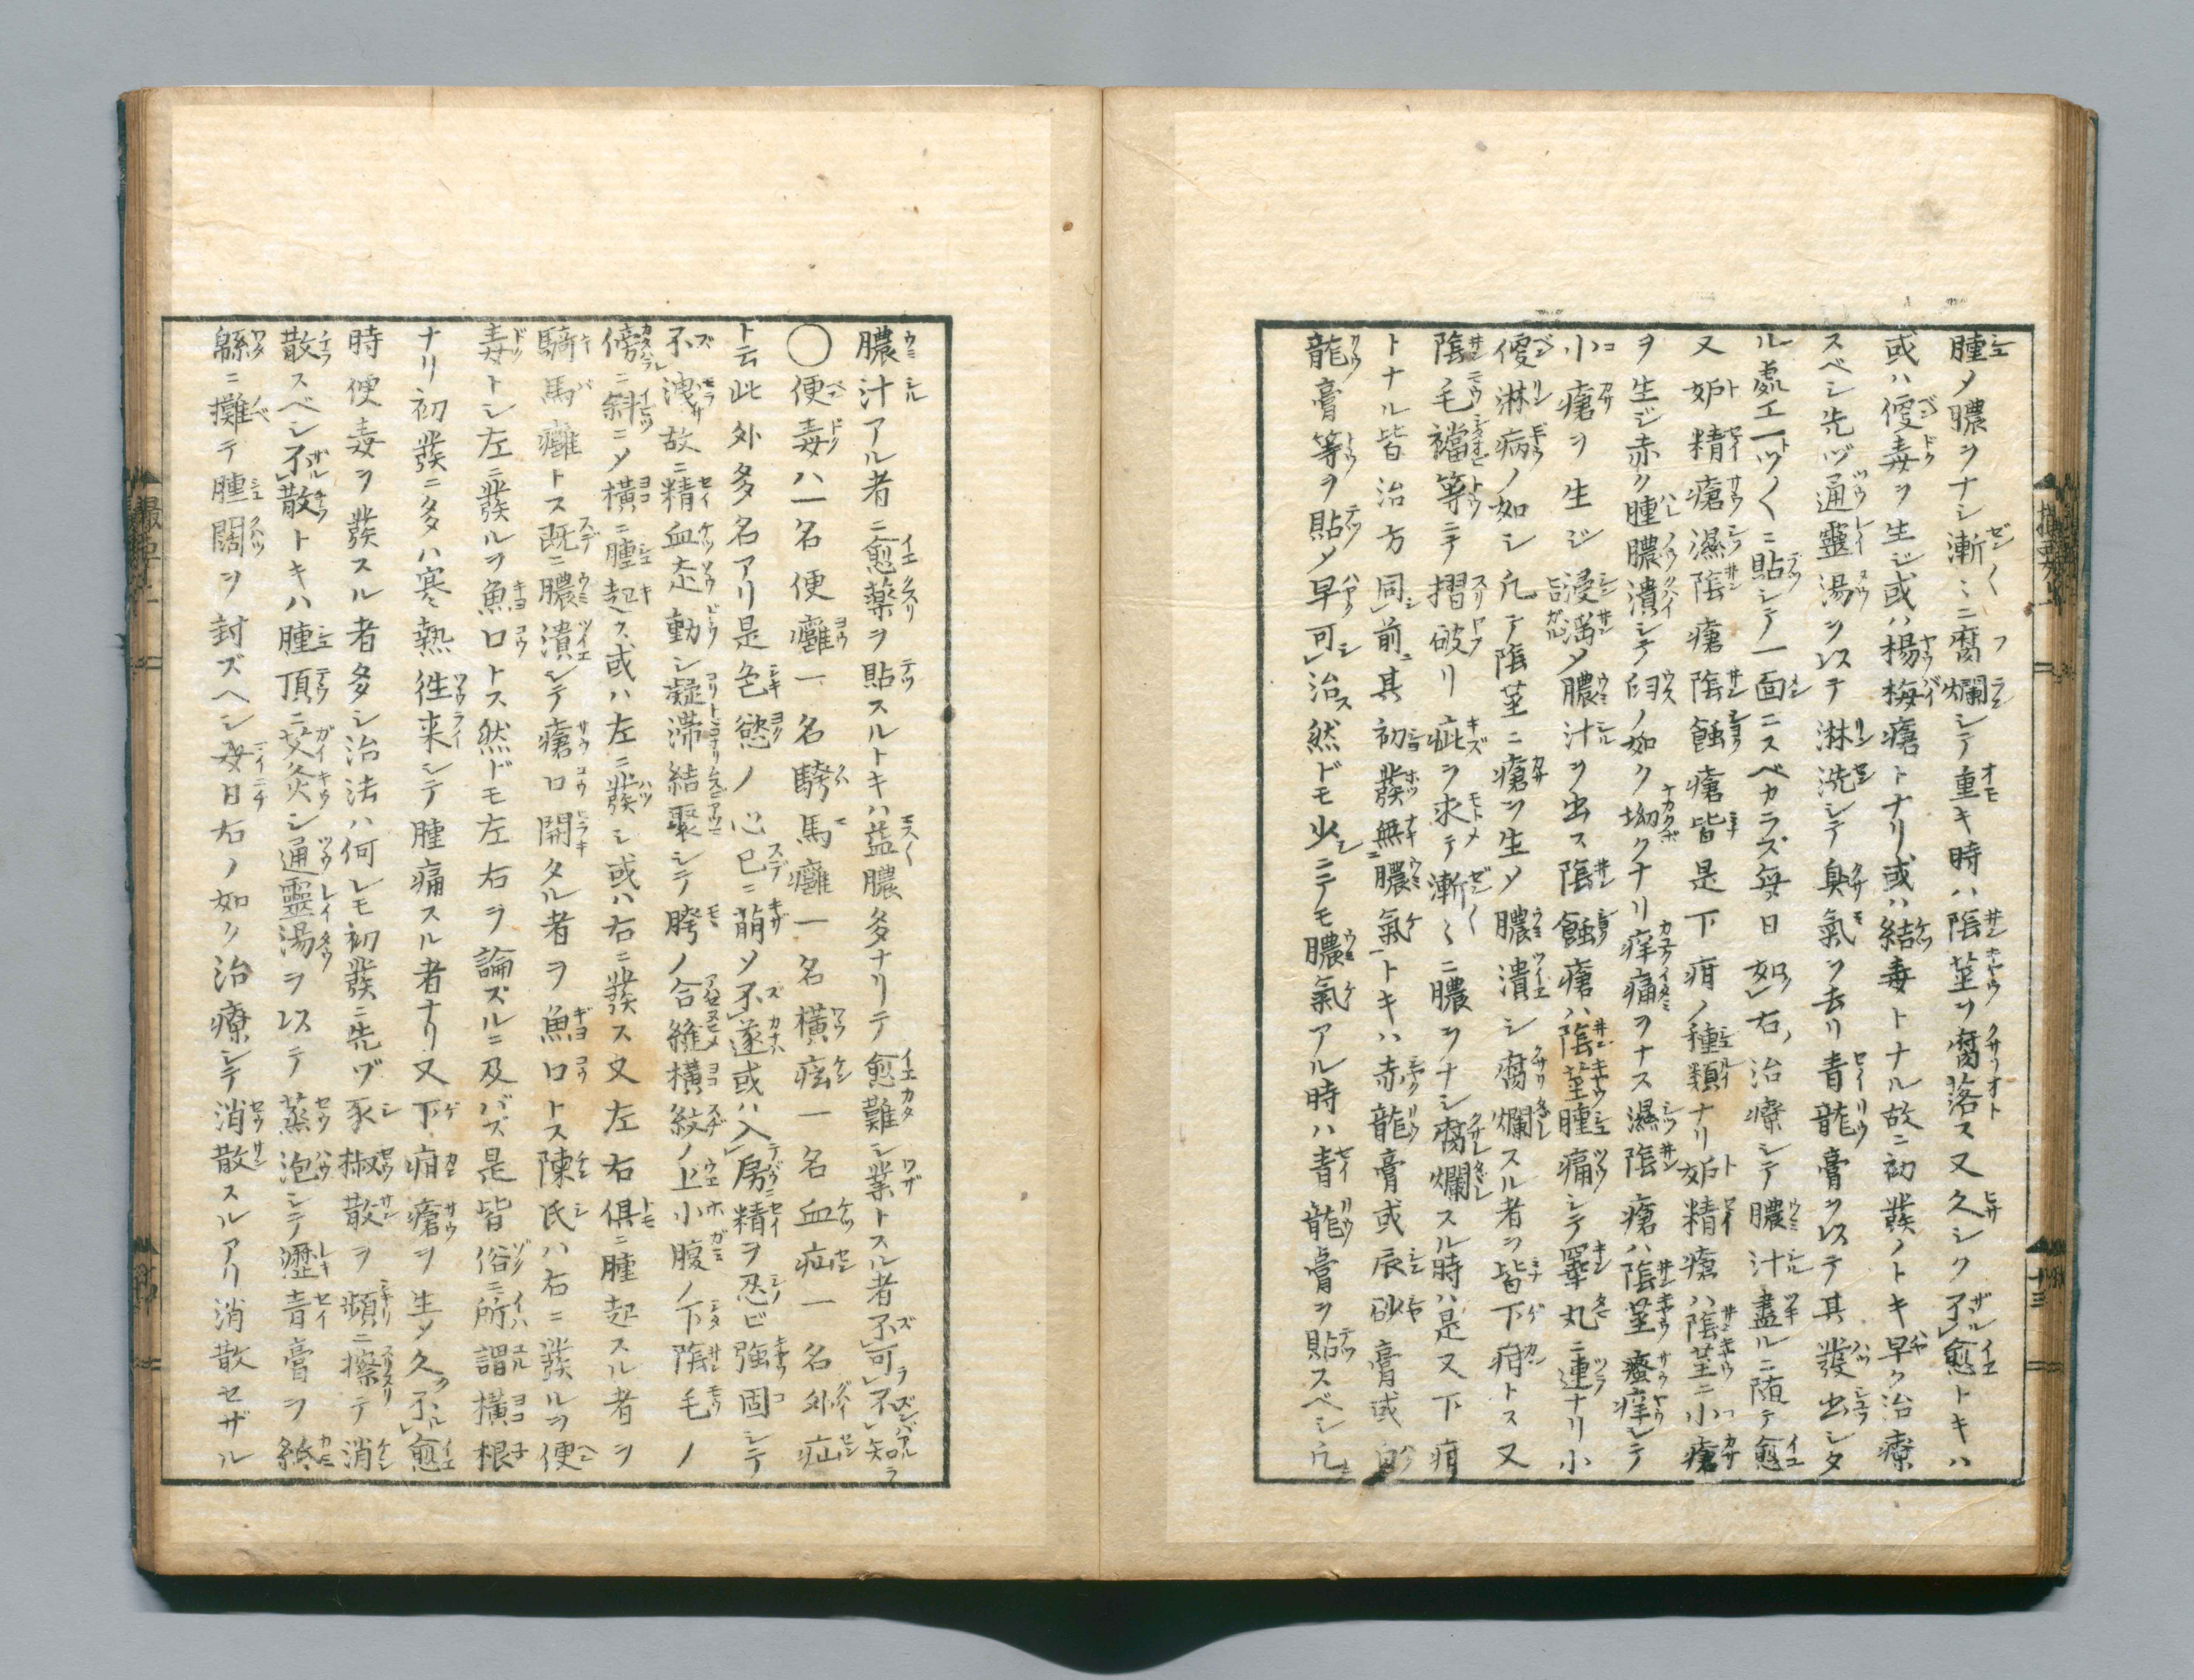 腫メ膿ヲナシ漸〻ニ腐爛シテ重キ時ハ陰莖ヲ腐落ス又久シク不愈トキハ
或ハ便毒ヲ生ジ或ハ楊梅瘡トナリ或ハ結毒トナル故ニ初發ノトキ早ク治療
スベシ先ヅ通靈湯ヲ以テ淋洗シテ臭氣ヲ去リ青龍膏ヲ以テ其發出シタ
ル處エ一ツ〱ニ貼シテ一面ニスベカラズ毎日如右治療シテ膿汁盡ルニ随テ愈
又妬精瘡濕陰瘡陰蝕瘡皆是下疳ノ種類ナリ妬精瘡ハ陰莖ニ小瘡
ヲ生ジ赤ク腫膿潰シテ臼ノ如ク坳クナリ痒痛ヲナス濕陰瘡ハ陰莖瘙痒シテ
小瘡ヲ生ジ浸淫メ膿汁ヲ出ス陰蝕瘡ハ陰莖腫痛シテ睾丸ニ連ナリ小
便淋病ノ如シ凡テ陰莖ニ瘡ヲ生メ膿潰シ腐爛スル者ヲ皆下疳トス又
陰毛襠等ニテ摺破リ疵ヲ求テ漸〻ニ膿ヲナシ腐爛スル時ハ是又下疳
トナル皆治方同前其初發無膿氣トキハ赤龍膏或辰砂膏或白
龍膏等ヲ貼メ早可治然ドモ少ニテモ膿氣アル時ハ青龍膏ヲ貼スベシ凡
膿汁アル者ニ愈藥ヲ貼スルトキハ益膿多ナリテ愈難シ業トスル者不可不知
〇便毒ハ一名便癰一名騎馬癰一名橫痃一名血疝一名外疝
ト云此外多名アリ是色慾ノ心已ニ萠メ不遂或ハ入房精ヲ忍ビ強固シテ
不洩故ニ精血走動シ凝滯結聚シテ胯ノ合縫橫紋ノ上小腹ノ下陰毛ノ
傍ニ斜ニメ橫ニ腫起ク或ハ左ニ發シ或ハ右ニ發ス又左右俱ニ腫起スル者ヲ
騎馬癰トス既ニ膿潰シテ瘡口開タル者ヲ魚口トス陳氏ハ右ニ發ルヲ便
毒トシ左ニ發ルヲ魚口トス然ドモ左右ヲ論ズルニ及バズ是皆俗ニ所謂橫根
ナリ初發ニ多ハ寒熱徃来シテ腫痛スル者ナリ又下疳瘡ヲ生メ久不愈
時便毒ヲ發スル者多シ治法ハ何レモ初發ニ先ヅ豕椒散ヲ頻ニ擦テ消
散スベシ不散トキハ腫頂ニ艾灸シ通靈湯ヲ以テ蒸泡シテ瀝青膏ヲ紙
緜ニ攤テ腫闊ヲ封ズヘシ毎日右ノ如ク治療シテ消散スルアリ消散セザル